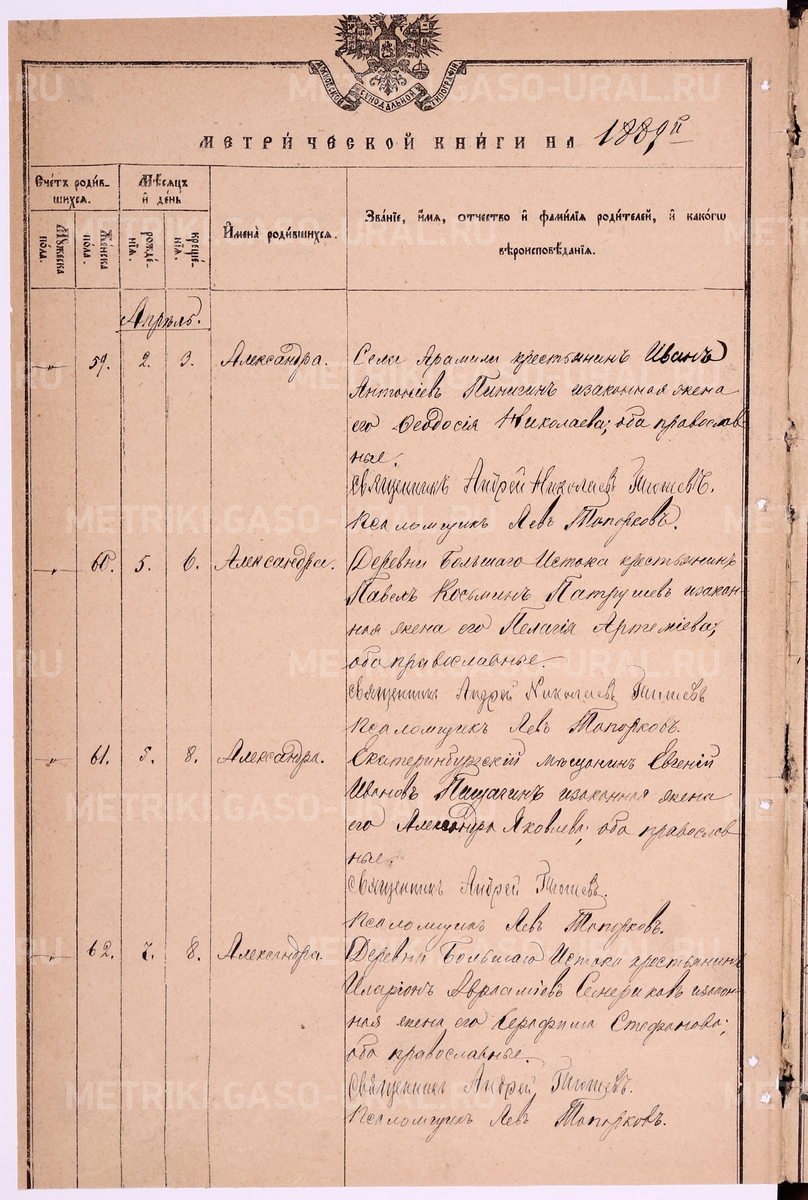 МОСКОВСКОЙ СѴНОДАЛЬНОЙ ТИПОГРАФІИ
МЕТРИ́ЧЕСКОЙ КНИ́ГИ НА 1889й
Сче́тъ роди́в-
шихся.
Му́жеска
по́ла.
Же́нска
по́ла.
Мѣ́сяцъ
и҆ де́нь
рожде́-
нїѧ.
креще́-
нїѧ.
И҆мена̀ роди́вшихсѧ.
Зва́нїе, и҆́мѧ, ѻ҆́тчество и҆ фами́лїѧ роди́телей, и҆ како́гѡ
вѣроисповѣ́данїѧ.
Апрѣль.
" 59. 2. 3. Александра. Села Арамили крестьянинъ Иванъ
Антоніевъ Пинигинъ изаконная жена
его Ѳеодосія Николаева; оба православ
ные.
Священникъ Андрей Николаевъ
Псаломщикъ Левъ Топорковъ.
" 60. 5. 6. Александра. Деревни Большаго Истока крестьянинъ
Павелъ Косьминъ Патрушевъ изакон
ная жена его Пелагія Артеміева;
оба православные.
Священникъ Андрей Николаевъ
Псаломщикъ Левъ Топорковъ.
" 61. 5. 8. Александра. Екатеринбургскій мѣщанинъ Евгеній
Ивановъ изаконная жена
его Александра Яковлева; оба православ
ные.
Священникъ Андрей
Псаломщикъ Левъ Топорковъ.
" 62. 7. 8. Александра. Деревни Большаго Истока крестьянинъ
Иларіонъ Авраамиевъ изакон-
ная жена его Серафима Стефанова;
оба православные.
Священникъ Андрей
Псаломщикъ Левъ Топорковъ.
METRIKI.GASO-URAL.RU